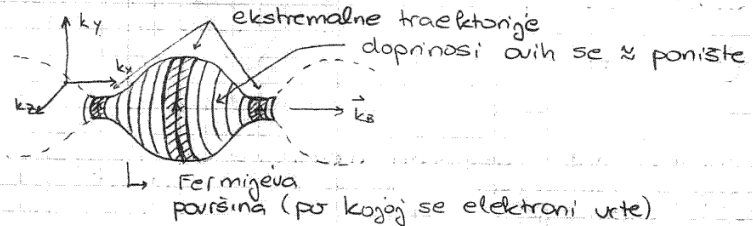 ky
ekstremalne traektorije
doprinosi ovih se ≈ ponište
kx
kz
k⃗B
↳ Fermijeva
površina (po kojoj se elektroni vrte)